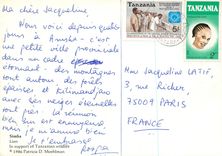 Ma chère Jacqueline
Nous voici depuis quatre
jours à Arusha. C'est
une petite ville provinciale
dans un cadre
étonnant: des montagnes
sont autour, des forêts
épaisses et Kilimandjaro
avec ses neiges éternelles
sont près. La réunion
bien sûr est ennuyeuse
mais je m'amuse bien
Je t'embrasse
Simba
Lion
In support of Tanzania wildlife
© 1986 Patricia D. Moehlman
TANZANIA
5/-
Tanzania
2/-
Mme Jacqueline
3, rue Richer,
75009 PARIS
FRANCE